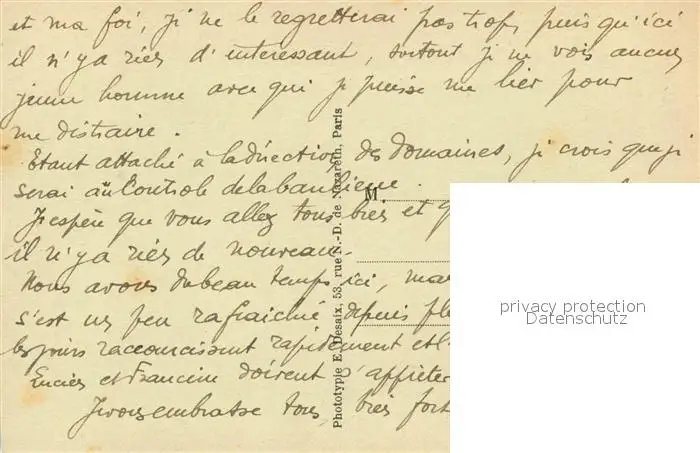 et ma foi, je ne le regretterai pas trop, puis qu'ici
il n'y a rien d'interessant, surtout je ne vois aucun
jeune homme avec qui je puisse me lier pour
me distraire.
Etant attaché à la direction des Domaines, je crois que je
serai au Controle de la banlieue.
J'espère que vous allez tous bien et
il n'y a rien de nouveau.
Nous avons du beau temps ici,
s'est un peu rafraichi depuis
les jours raccourcissent rapidement et
et Francine doivent s'appreter
Je vous embrasse tous bien fort
M.
Phototypie E. Desaix, 53, rue N.-D. de Nazareth, Paris
privacy protection
Datenschutz